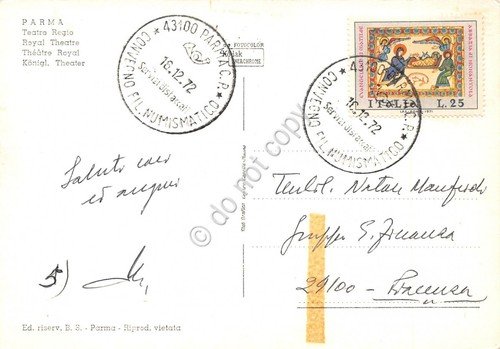 PARMA
Teatro Regio
Royal Theatre
Théâtre Royal
Königl. Theater
43100 PARMA C.P.
16.12.72
Servizi distaccati
CONVEGNO FIL. NUMISMATICO
FOTOCOLOR
43100 PARMA C.P.
16.12.72
Servizi distaccati
CONVEGNO FIL. NUMISMATICO
ITALIA L. 25
Saluti cari
ed auguri
5)
do not copy
Natan Manfredi
Gruppo G. Finanza
29100 - Piacenza
Ed. riserv. B. S. - Parma - Riprod. vietata